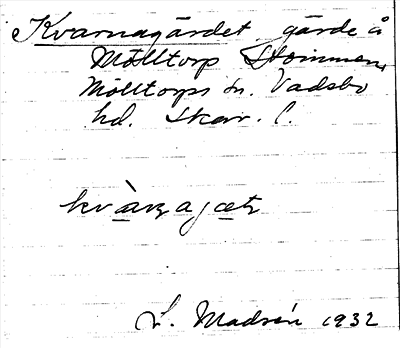 Kvarnagärdet, gärde å
Mölltorp Stommen,
Mölltorps sn. Vadsbo
hd. Skar. l.
L. Madsén 1932